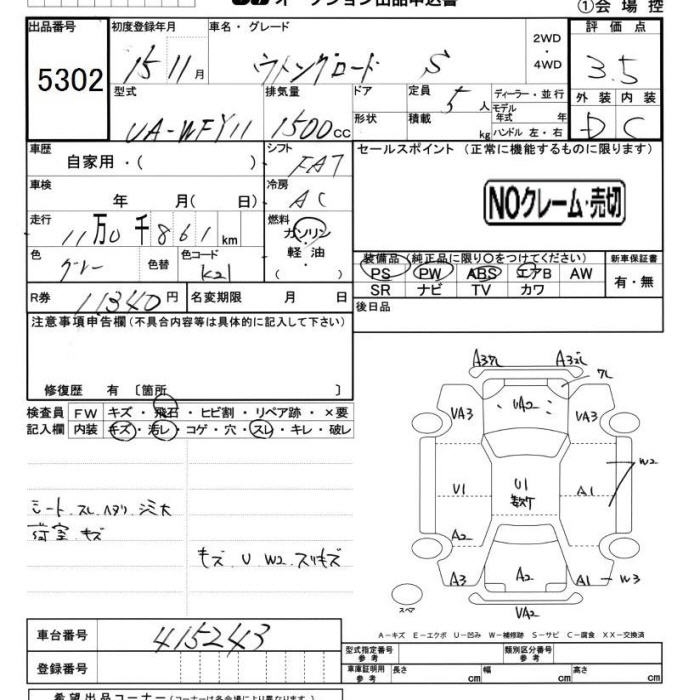 オークション出品申込書
①会場控
出品番号 初度登録年月 車名・グレード 評価点
5302 15 11月 ウイングロード S 2WD・4WD 3.5
型式 排気量 ドア 定員 5人 ディーラー・並行 外装 内装
UA-WFY11 1500cc 形状 積載 kg モデル年式 年 ハンドル 左・右 D C
車歴 自家用・( ) シフト FAT セールスポイント (正常に機能するものに限ります)
車検 年 月( 日) 冷房 AC
NOクレーム・売切
走行 11万0千861km 燃料 ガソリン・軽油
色 グレー 色替 色コード K21
装備品(純正品に限り○をつけてください) 新車保証書
PS PW ABS エアB AW 有・無
SR ナビ TV カワ
R券 11340円 名変期限 月 日 後日品
注意事項申告欄(不具合内容等は具体的に記入して下さい)
修復歴 有〔箇所 〕
検査員 FW キズ・飛石・ヒビ割・リペア跡・×要
記入欄 内装 キズ・汚レ・コゲ・穴・スレ・キレ・破レ
シート.スレ.ヘタリ.シミ大
荷室.キズ
キズ U W2.スリキズ
UA2
UA3 UA3
U1 U1 A1 W2
A2
A3 A2 A1-W3
スペア
UA2
A-キズ E-エクボ U-凹み W-補修跡 S-サビ C-腐食 XX-交換済
車台番号 415243
型式指定番号 参考 類別区分番号 参考
登録番号
車庫証明用 参考 長さ cm 幅 cm 高さ cm
希望出品コーナー(コーナーは各会場により異なります。)